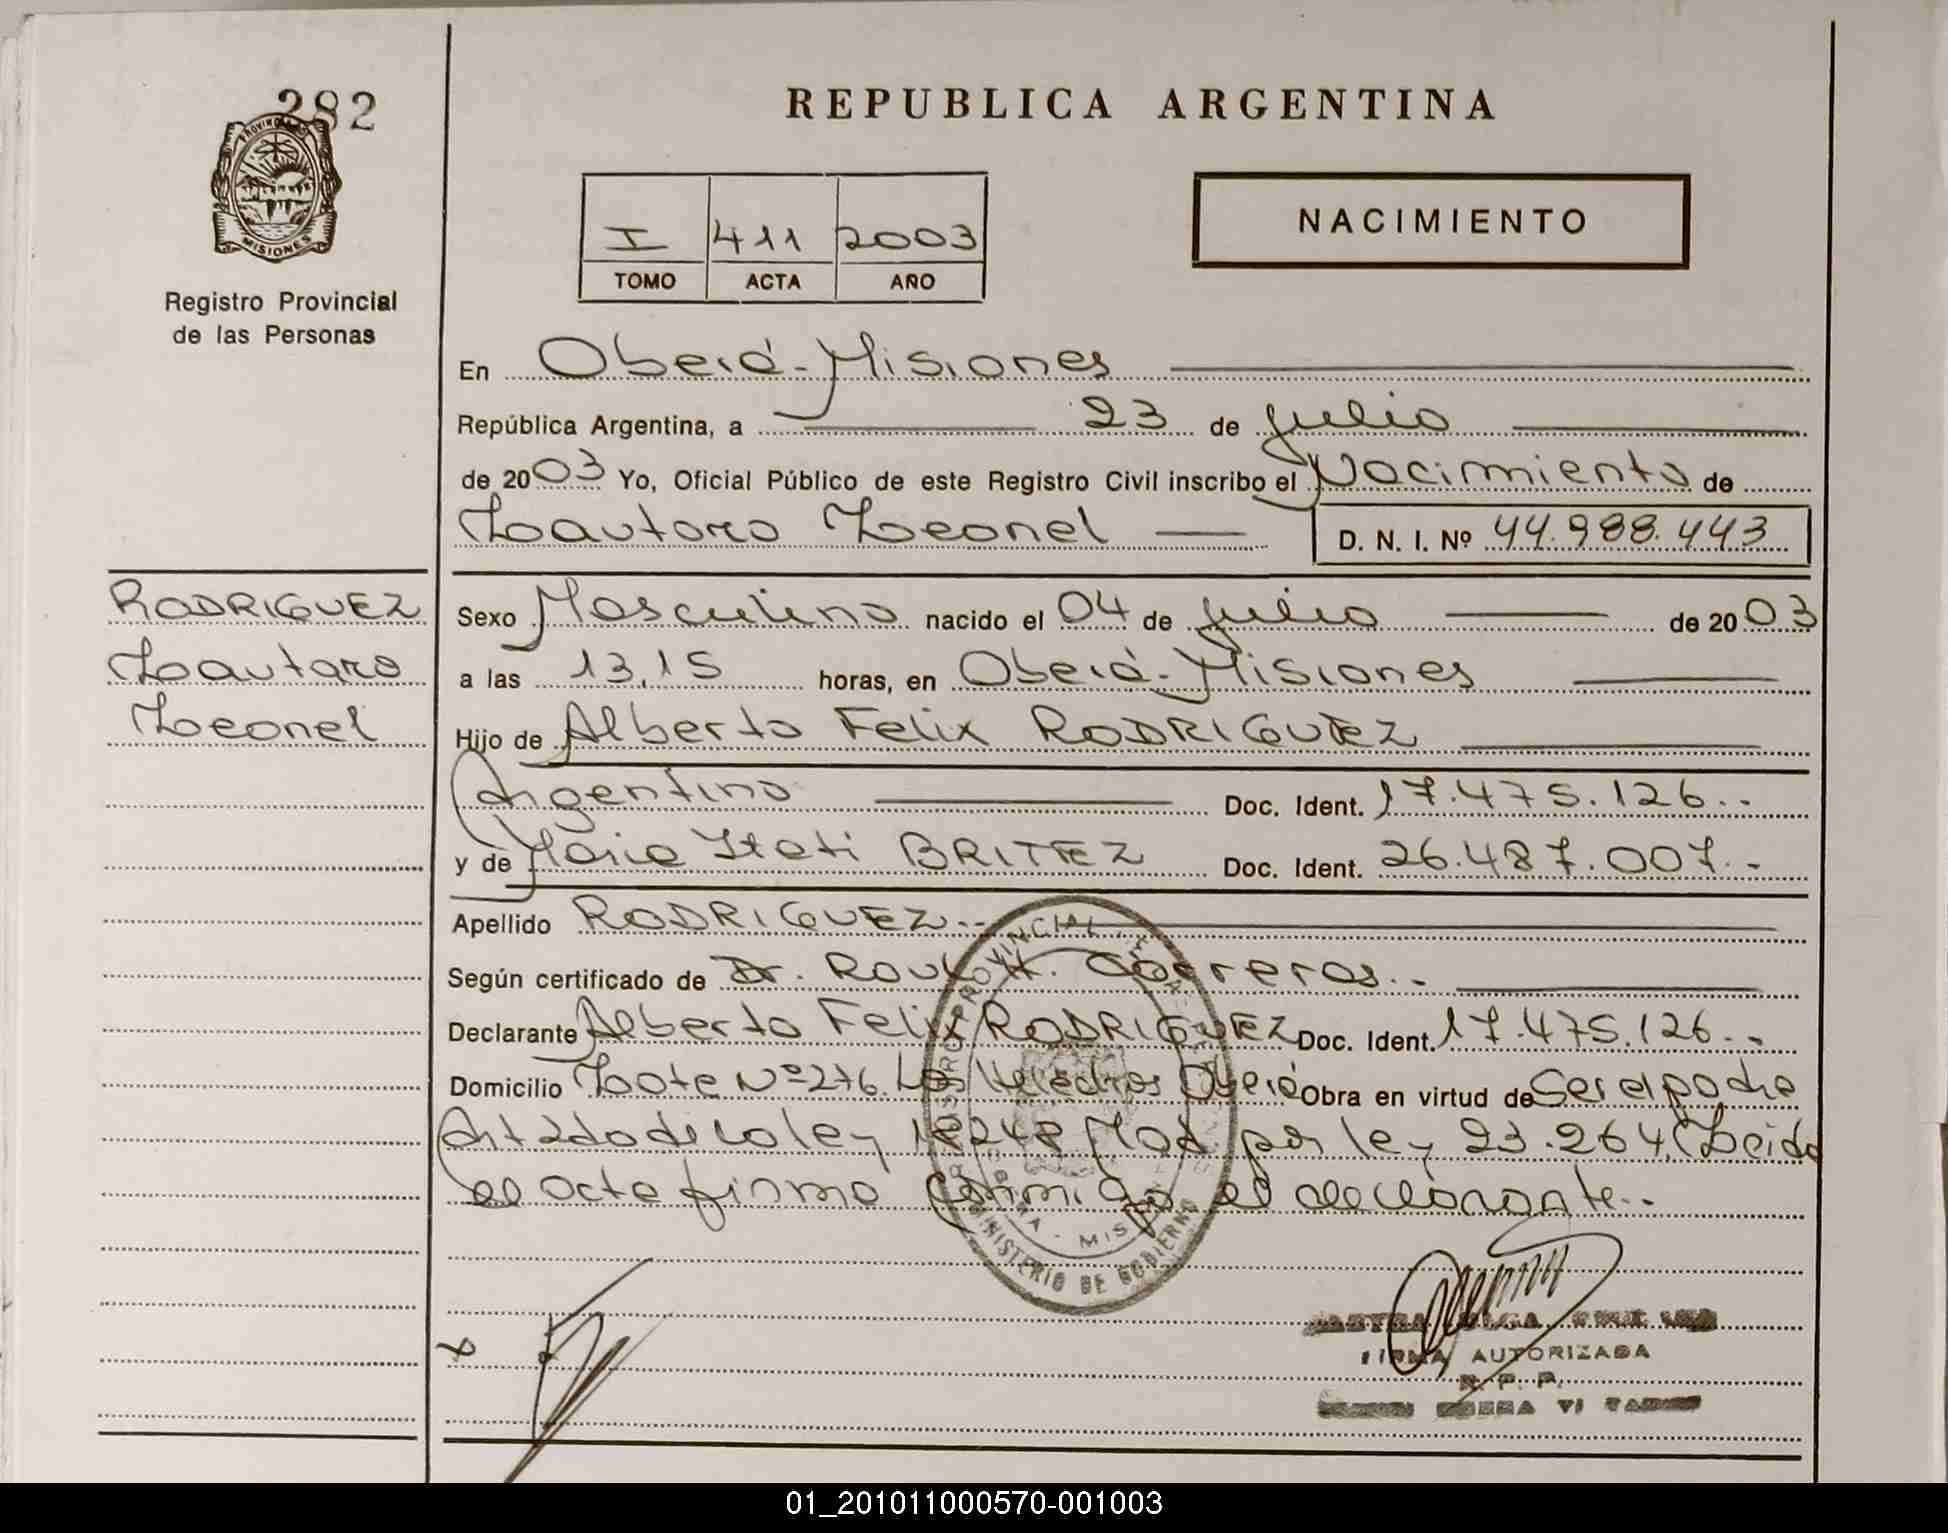 282
PROVINCIA DE
MISIONES
Registro Provincial
de las Personas
REPUBLICA ARGENTINA
I 411 2003
TOMO ACTA AÑO
NACIMIENTO
En Oberá-Misiones
República Argentina, a 23 de julio
de 2003 Yo, Oficial Público de este Registro Civil inscribo el Nacimiento de
Lautaro Leonel D. N. I. Nº 44.988.443
RODRIGUEZ
Lautaro
Leonel
Sexo Masculino nacido el 04 de julio de 2003
a las 13,15 horas, en Oberá-Misiones
Hijo de Alberto Felix RODRIGUEZ
Argentino Doc. Ident. 17.475.126..
y de Maria Itati BRITEZ Doc. Ident. 26.487.007.-
Apellido RODRIGUEZ.-
Según certificado de Dr. Raul H. Carreras.-
Declarante Alberto Felix RODRIGUEZ Doc. Ident. 17.475.126..
Domicilio Lote Nº 276. Los Oberá Obra en virtud de Ser el padre
Art 2do de la ley 18248 Mod. por ley 23.264. Leida
el acta firma conmigo el declarante..
PROVINCIAL
MINISTERIO DE GOBIERNO
FIRMA AUTORIZADA
R. P. P.
01_201011000570-001003